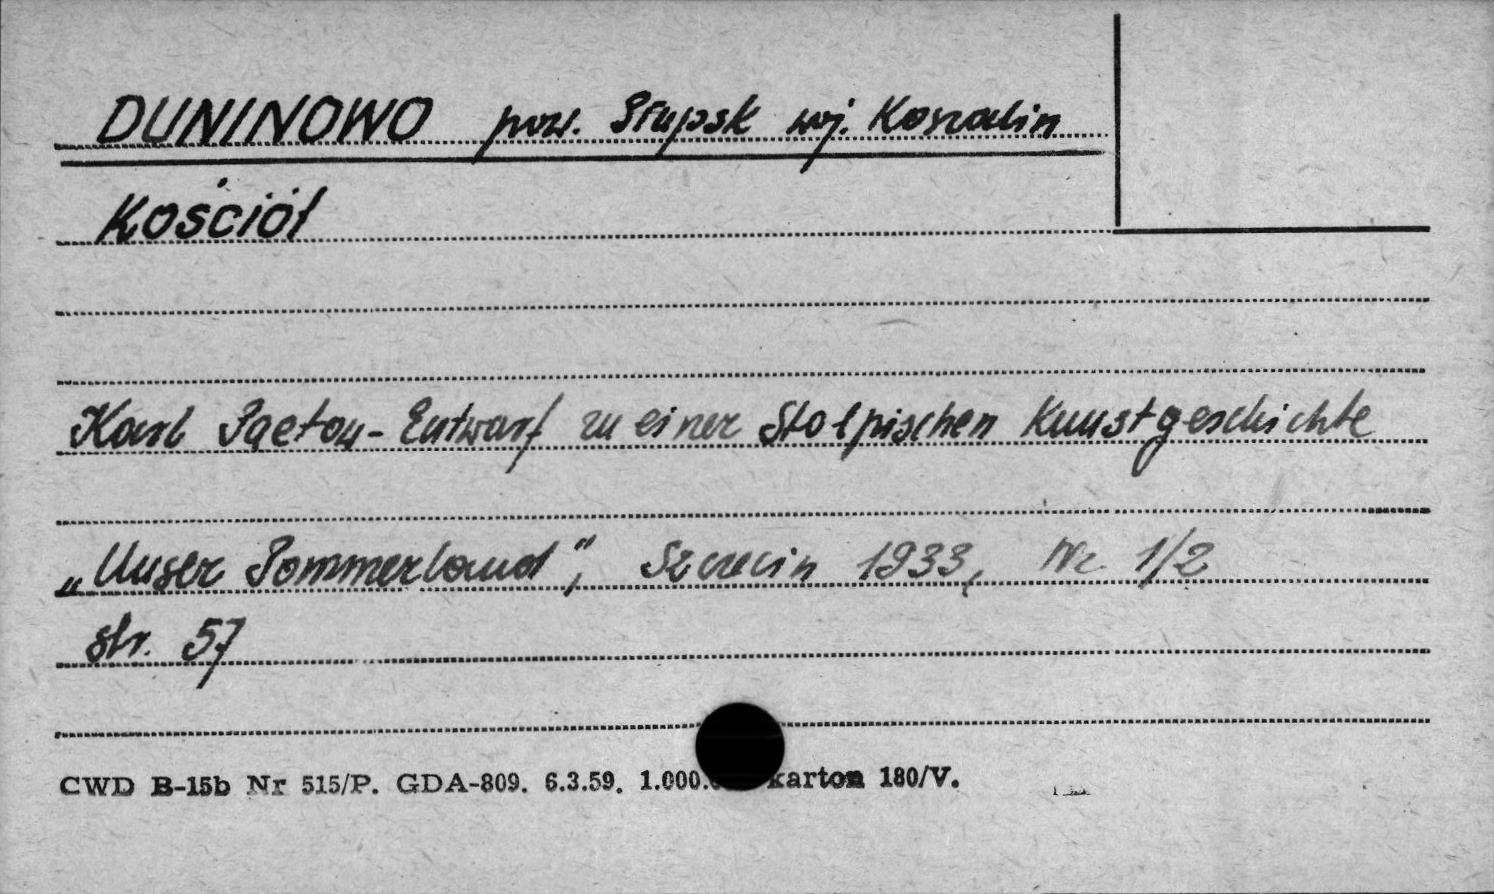 DUNINOWO pow. Słupsk woj. Koszalin
Kościół
Karl Paetow - Entwurf zu einer Stolpischen Kunstgeschichte
„Unser Pommerland", Szczecin 1933, Nr. 1/2
str. 57
CWD B-15b Nr 515/P. GDA-809. 6.3.59. 1.000. karton 180/V.